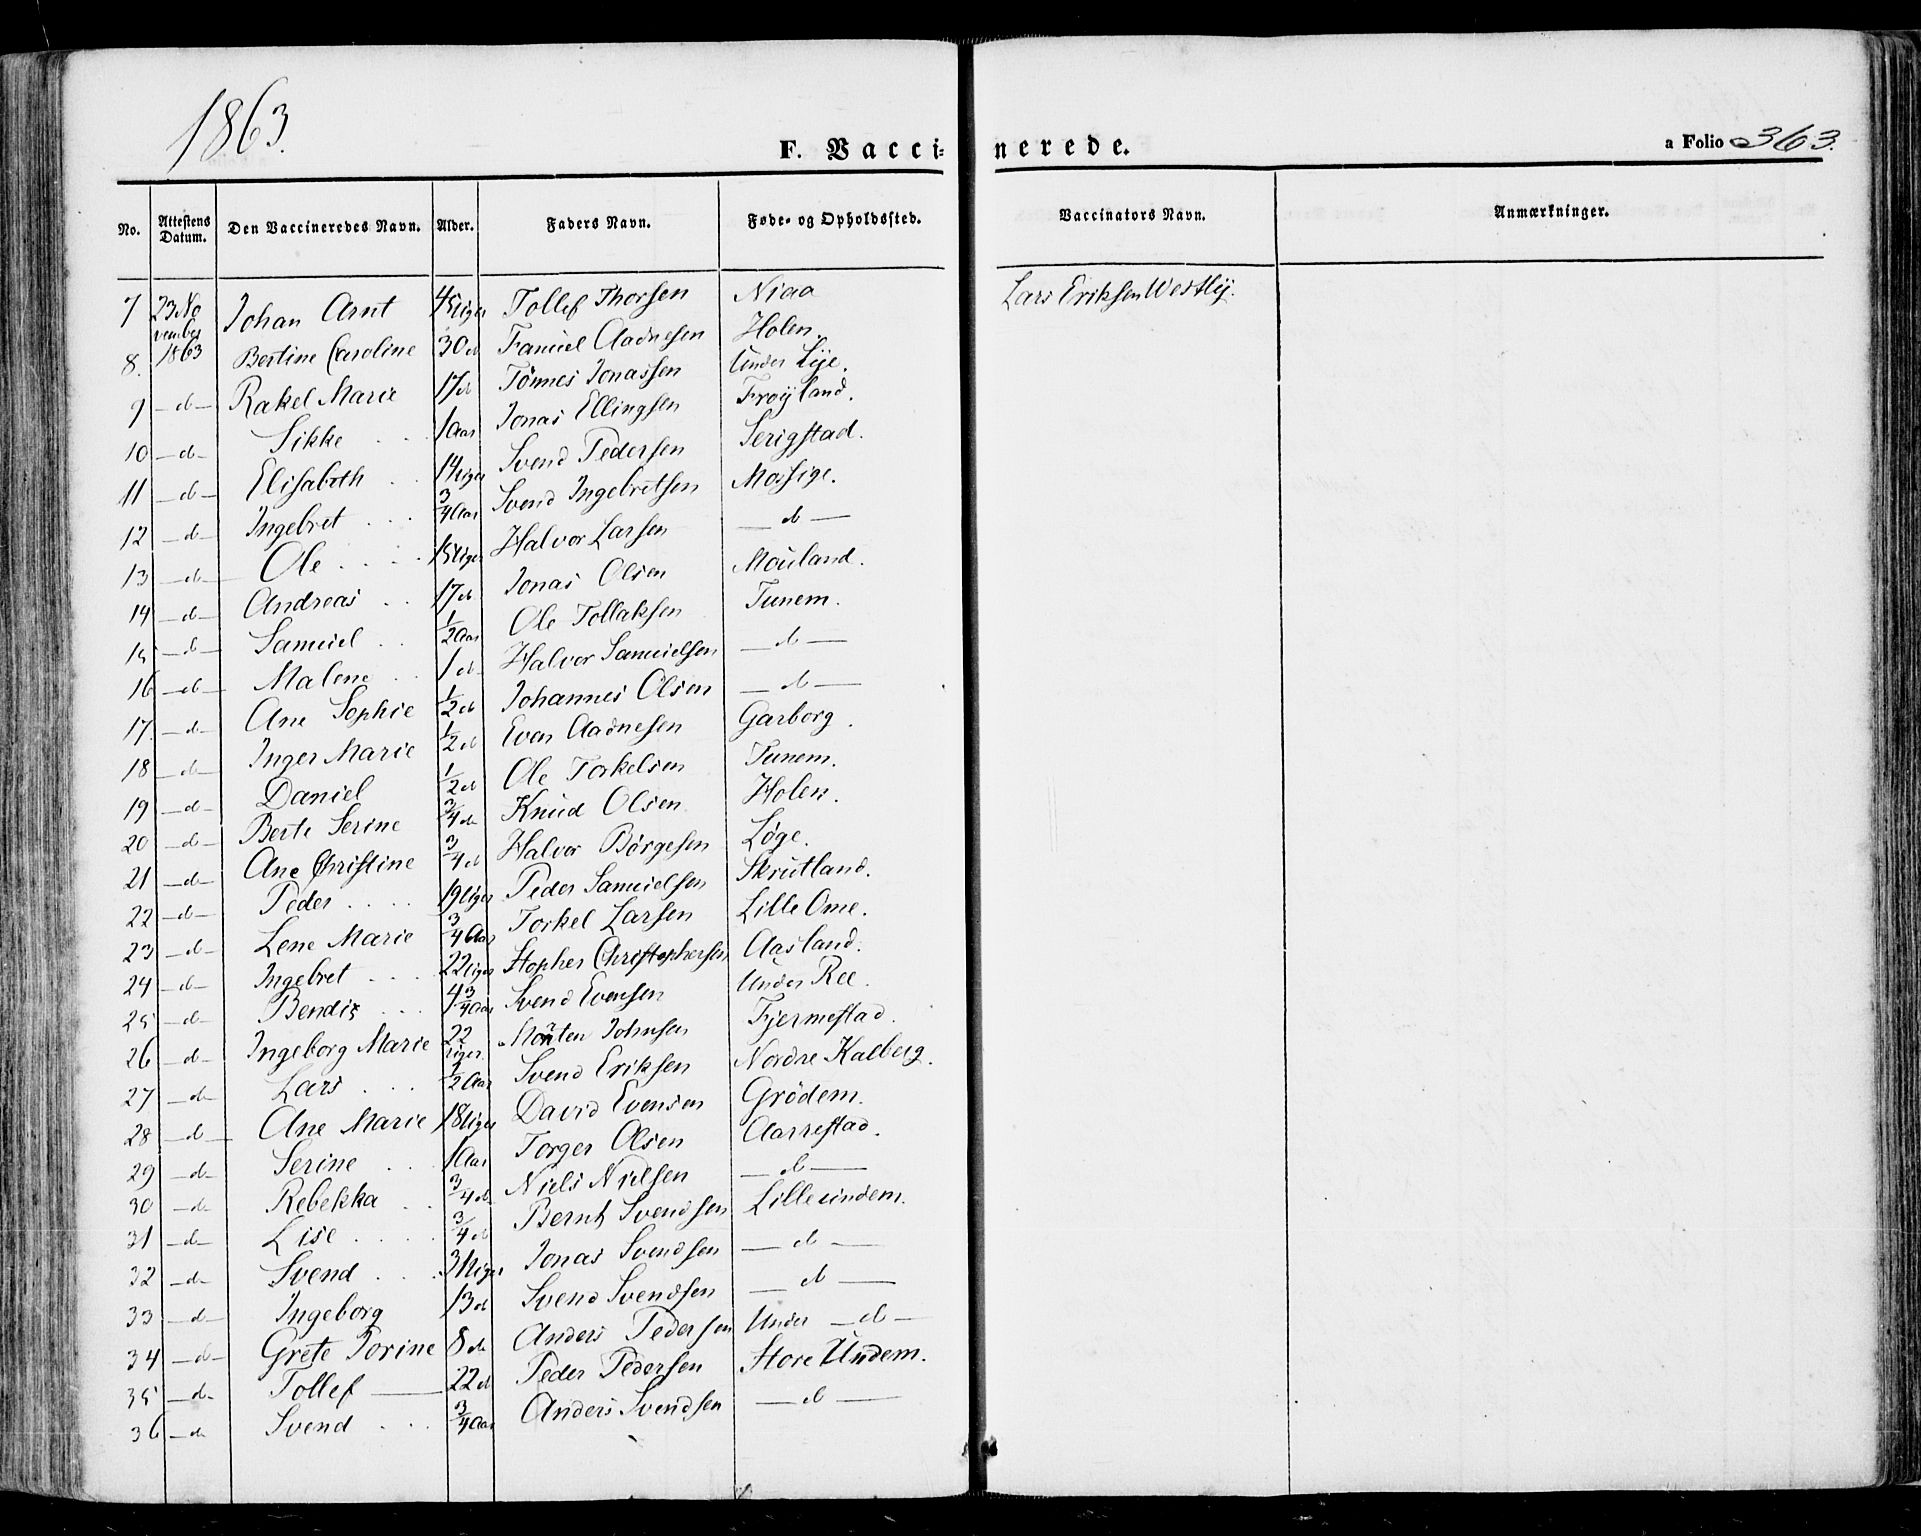 1863.
F. Vaccinerede.
a Folio 363.
No. Attestens Datum. Den Vaccineredes Navn. Alder. Faders Navn. Føde- og Opholdssted. Vaccinators Navn. Anmærkninger.
7 23 No Johan Arnt 45 Uger Tollef Thorsen Niaa Lars Eriksen Westly.
vember
8. 1863 Bertine Caroline 30 d Samuel Aadnesen Holen.
9 -d- Rakel Marie 17 d Tønnes Jonassen Under Lye.
10 -d- Sikke 1 Aar Jonas Ellingsen Frøyland.
11 -d- Elisabeth 14 Uger Svend Pedersen Serigstad.
12 -d- Ingebret 3/4 Aar Svend Ingebretsen Mossige.
13 -d- Ole 15 Uger Halvor Larsen -d-
14 -d- Andreas 17 d Jonas Olsen Mauland.
15 -d- Samuel 1/2 Aar Ole Tollaksen Tunem.
16 -d- Malene 1 d Halvor Samuelsen -d-
17. -d- Ane Sophie 1/2 d Johannes Olsen -d-
18 -d- Inger Marie 1/2 d Even Aadnesen Garborg.
19 -d- Daniel 1/2 d Ole Torkelsen Tunem.
20 -d- Berte Serine 3/4 d Knud Olsen Holen.
21 -d- Ane Christine 3/4 d Halvor Børgesen Løge.
22 -d- Peder 19 Uger Peder Samuelsen Skrutland.
23 -d- Lene Marie 3/4 Aar Torkel Larsen Lille Ome.
24 -d- Ingebret 22 Uger Stopher Christophersen Aasland.
25 -d- Bendix 4 3/4 Aar Svend Evensen Under Ree.
26 -d- Ingeborg Marie 22 Uger Morten Johnsen Fjermestad.
27 -d- Lars 1/2 Aar Svend Eriksen Nordre Kalberg.
28 -d- Ane Marie 18 Uger David Evensen Grödem.
29 -d- Serine 1 Aar Torger Olsen Aarrestad.
30 -d- Rebekka 3/4 d Niels Nielsen -d-
31 -d- Lise 3/4 d Bernt Svendsen Lille undem.
32 -d- Svend 31 Uger Jonas Svendsen -d-
33 -d- Ingeborg 13 d Svend Svendsen -d-
34 -d- Grete Torine 8 d Anders Pedersen Under -d-
35 -d- Tollef 22 d Peder Pedersen Store Undem.
36 -d- Svend 3/4 Aar Anders Svendsen -d-